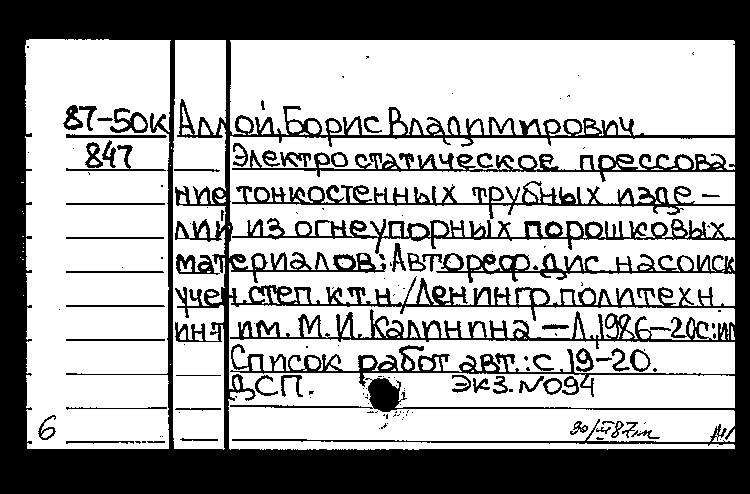 87-50к Аллой, Борис Владимирович.
847 Электростатическое прессова-
ние тонкостенных трубных изде-
лий из огнеупорных порошковых
материалов: Автореф. дис. на соиск
учен. степ. к.т.н./Ленингр. политехн.
ин-т им. М.И. Калинина - Л., 1986-20с: ил
Список работ авт.: с. 19-20.
ДСП. Экз. №094
6